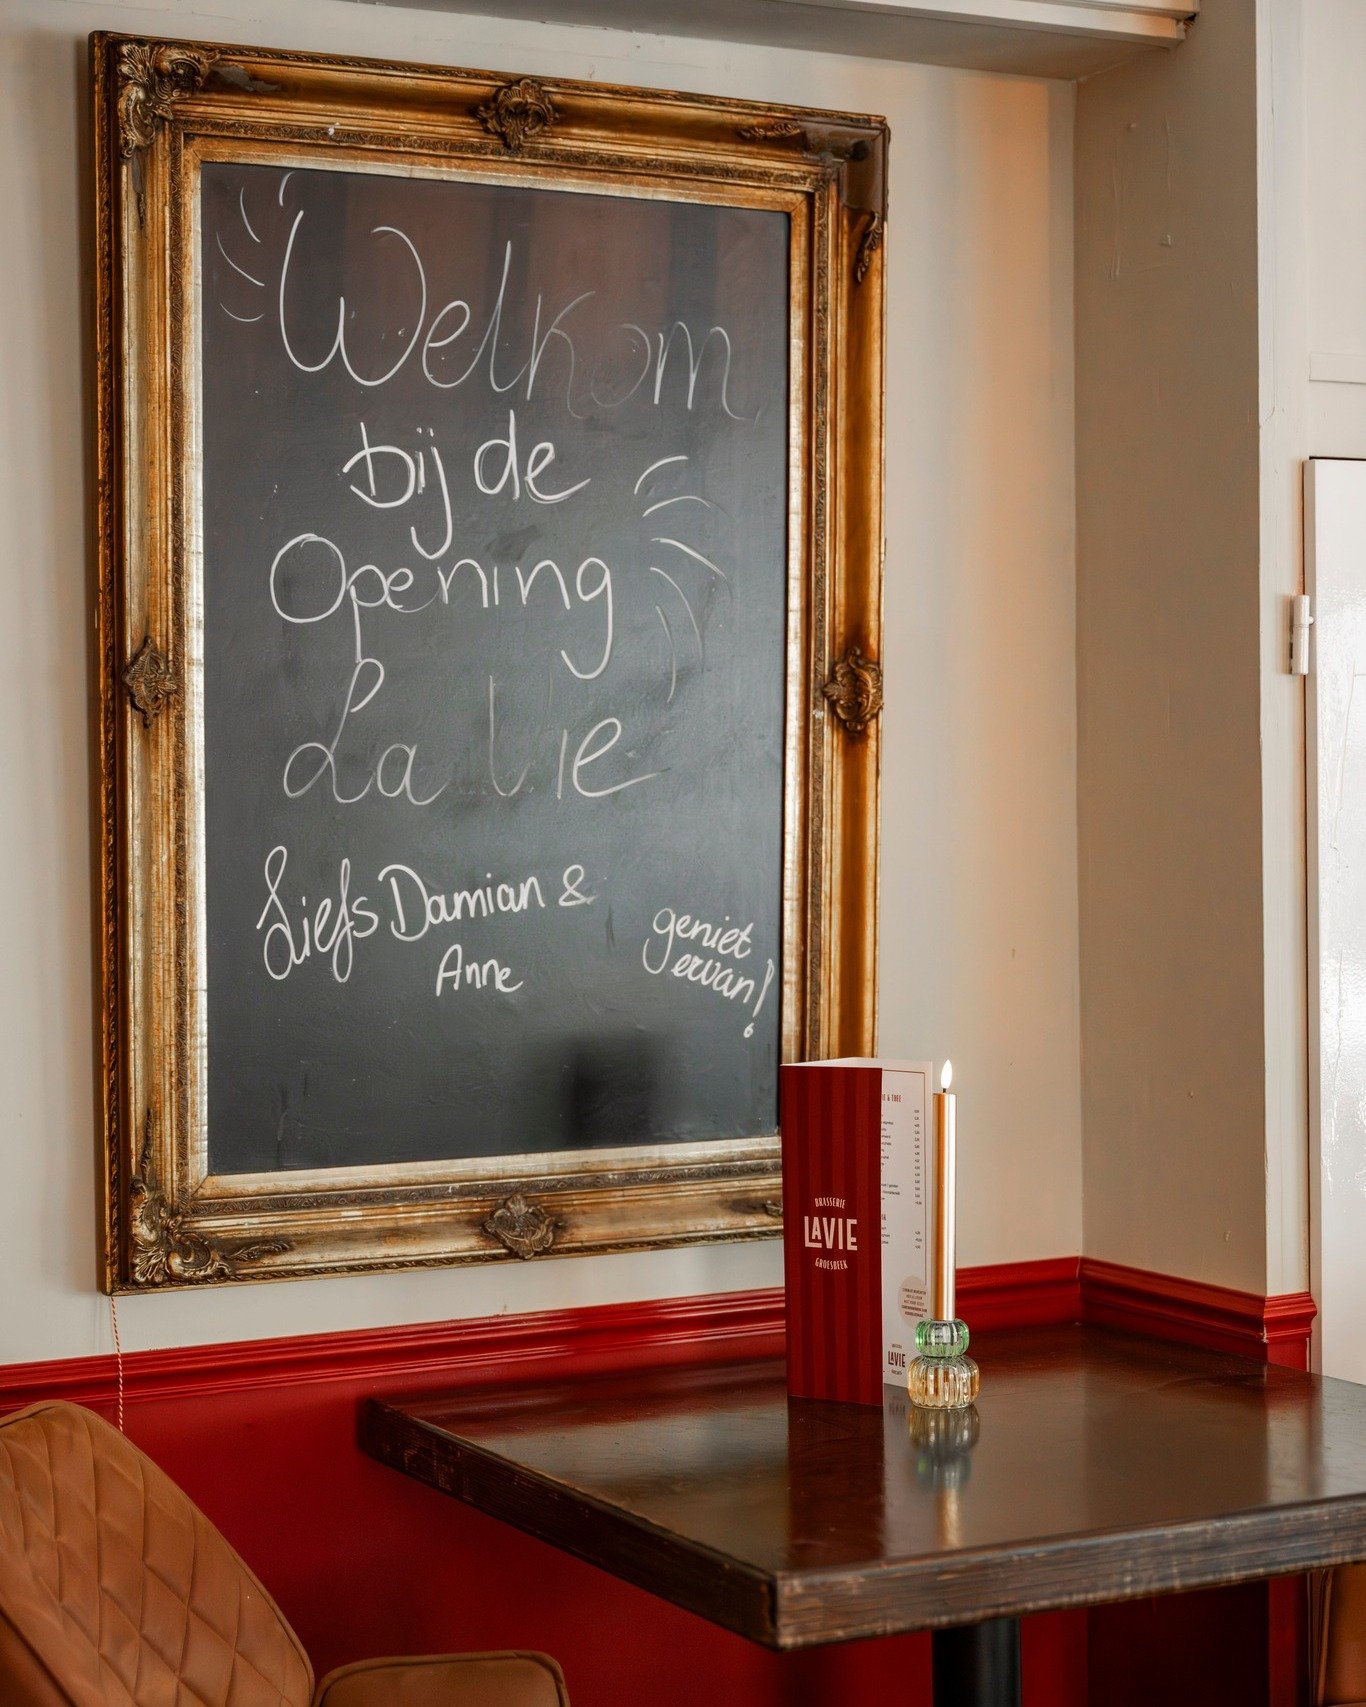 Welkom
bij de
Opening
La Vie
Liefs Damian &
Anne
geniet
ervan!
BRASSERIE
LAVIE
GROESBEEK
LAVIE